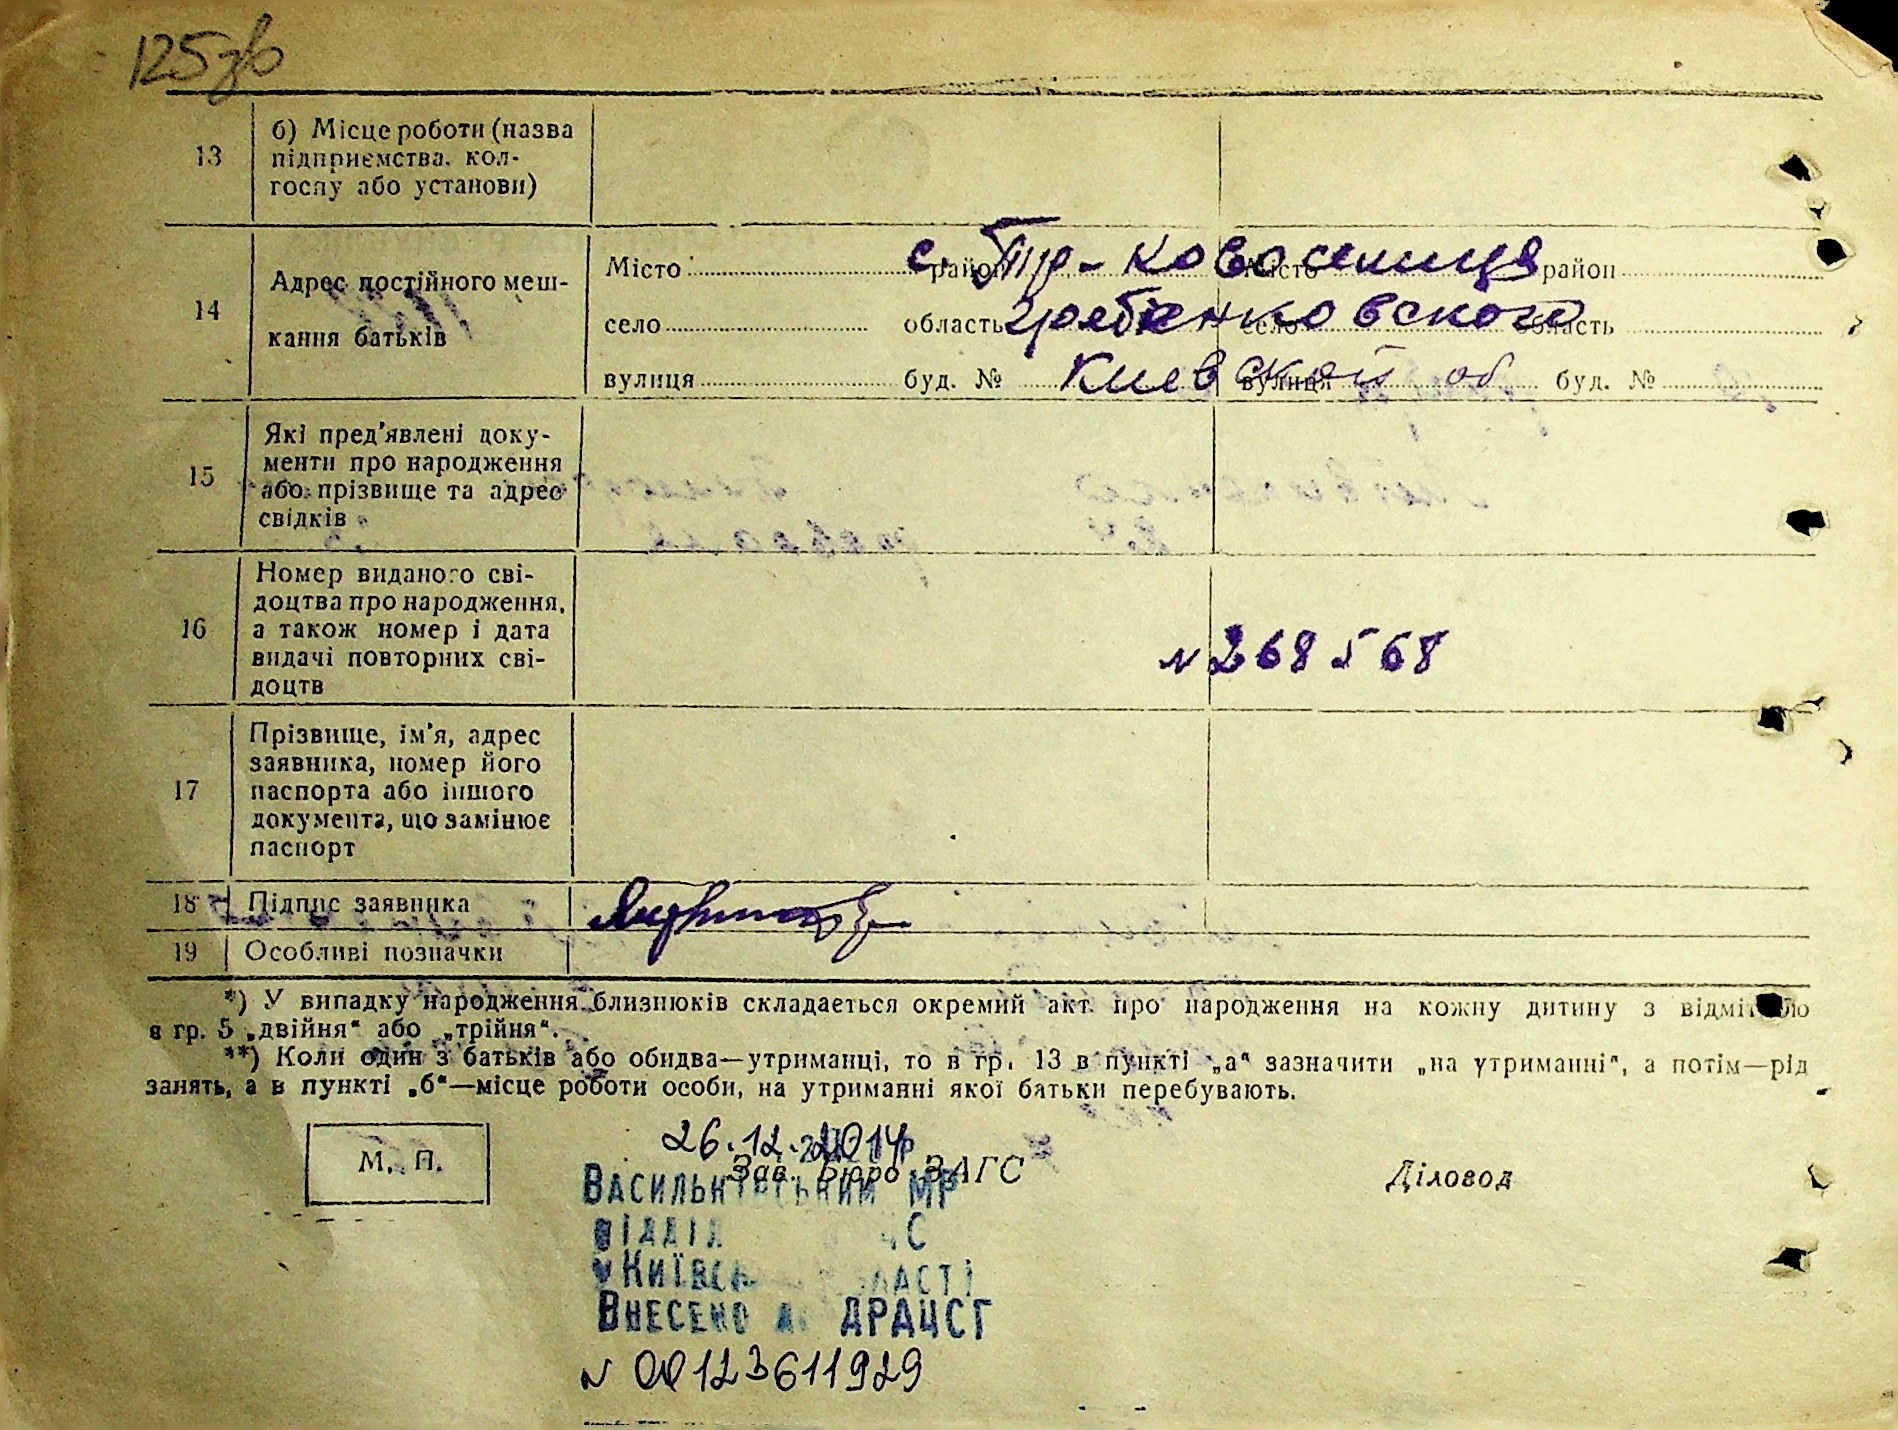 125зв
13
б) Місце роботи (назва
підприємства, кол-
госпу або установи)
14
Адрес постійного меш-
кання батьків
Місто район Місто район
с. Тр-Новоселиця
село область село область
Гребенковского
вулиця буд. № вулиця буд. №
Киевской об
15
Які пред'явлені доку-
менти про народження
або прізвище та адрес
свідків
16
Номер виданого сві-
доцтва про народження,
а також номер і дата
видачі повторних сві-
доцтв
N 268568
17
Прізвище, ім'я, адрес
заявника, номер його
паспорта або іншого
документа, що замінює
паспорт
18 Підпис заявника
19 Особливі позначки
*) У випадку народження близнюків складається окремий акт про народження на кожну дитину з відміткою
в гр. 5 „двійня“ або „трійня“.
**) Коли один з батьків або обидва—утриманці, то в гр. 13 в пункті „а“ зазначити „на утриманні“, а потім—рід
занять, а в пункті „б“—місце роботи особи, на утриманні якої батьки перебувають.
26.12.2014р
М. П.
Зав. Бюро ЗАГС
Діловод
Васильківський МР
відділ ЦС
у Київській області
Внесено до ДРАЦСГ
N 00123611929